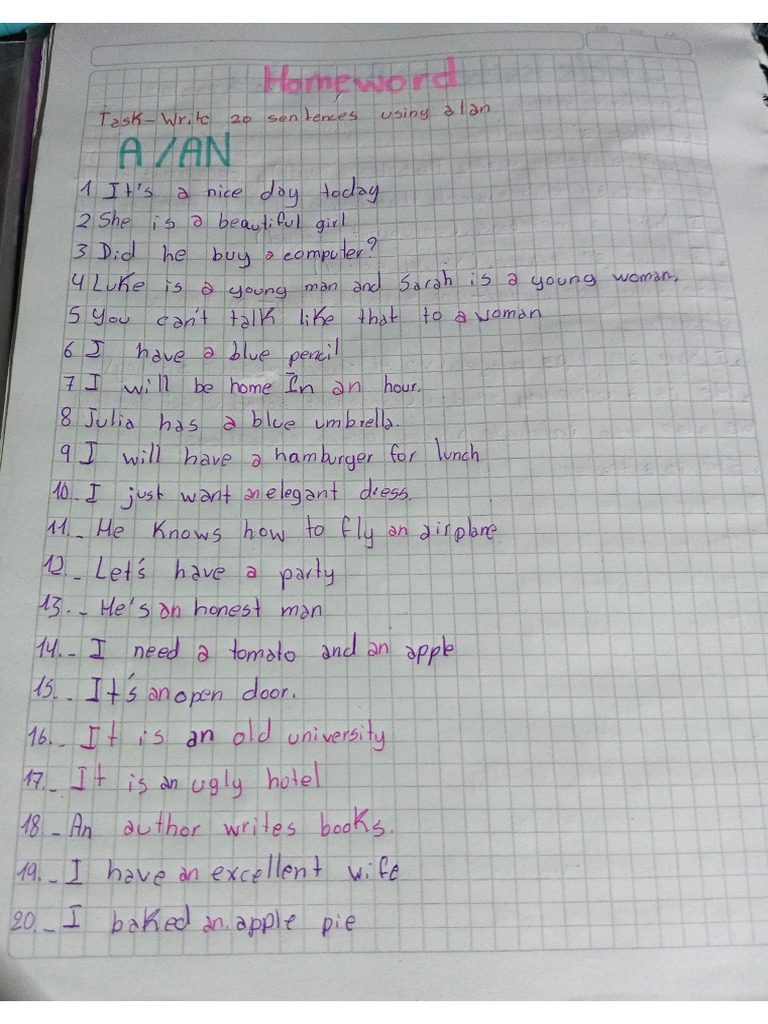 Homeword
Task-Write 20 sentences using a/an
A/AN
1 It's a nice day today
2 She is a beautiful girl
3 Did he buy a computer?
4 Luke is a young man and Sarah is a young woman.
5 You can't talk like that to a woman
6 I have a blue pencil
7 I will be home In an hour.
8 Julia has a blue umbrella.
9 I will have a hamburger for lunch
10.- I just want an elegant dress.
11.- He Knows how to fly an airplane
12.- Let's have a party
13.- He's an honest man
14.- I need a tomato and an apple
15.- It's an open door.
16.- It is an old university
17.- It is an ugly hotel
18- An author writes books.
19.- I have an excellent wife
20.- I baked an apple pie